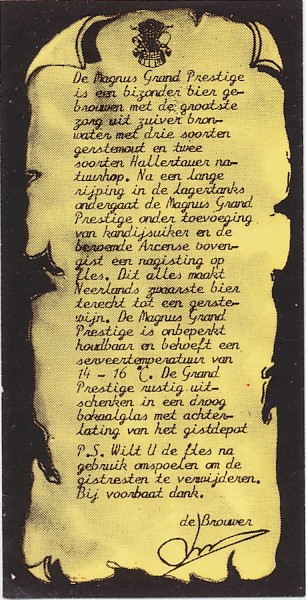 De Magnus Grand Prestige
is een bizonder bier ge-
brouwen met de grootste
zorg uit zuiver bron-
water met drie soorten
gerstemout en twee
soorten Hallertauer na-
tuurhop. Na een lange
rijping in de lagertanks
ondergaat de Magnus Grand
Prestige onder toevoeging
van kandijsuiker en de
beroemde Arcense boven-
gist een nagisting op
fles. Dit alles maakt
Neerlands zwaarste bier
terecht tot een gerste-
wijn. De Magnus Grand
Prestige is onbeperkt
houdbaar en behoeft een
serveertemperatuur van
14 - 16 °C. De Grand
Prestige rustig uit-
schenken in een droog
bokaalglas met achter-
lating van het gistdepot
P.S. Wilt U de fles na
gebruik omspoelen om de
gistresten te verwijderen.
Bij voorbaat dank.
de Brouwer